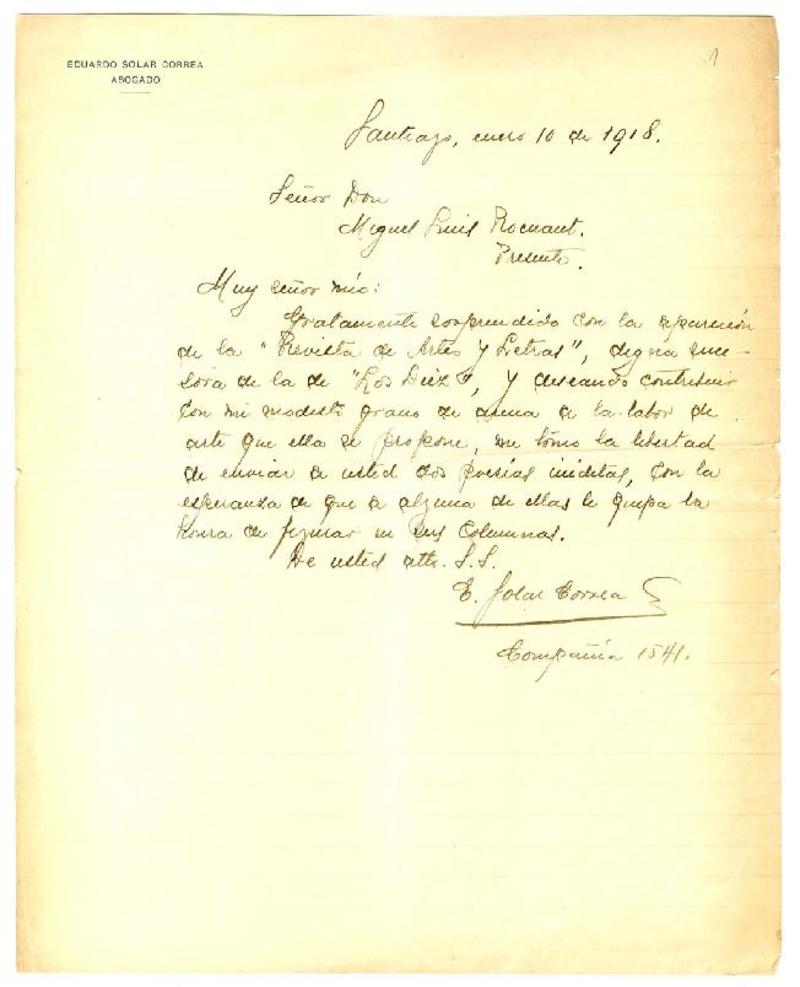 EDUARDO SOLAR CORREA
ABOGADO
1
Santiago, enero 10 de 1918.
Señor Don
Miguel Luis Rocuant.
Presente.
Muy señor mío:
Gratamente sorprendido con la aparición
de la "Revista de Artes y Letras", digna suce-
sora de la de "Los Diez", y deseando contribuir
con mi modesto grano de arena a la labor de
arte que ella se propone, me tomo la libertad
de enviar a usted dos poesías inéditas, con la
esperanza de que a alguna de ellas le quepa la
honra de figurar en sus columnas.
De usted atto. S.S.
E. Solar Correa
Compañía 1541.